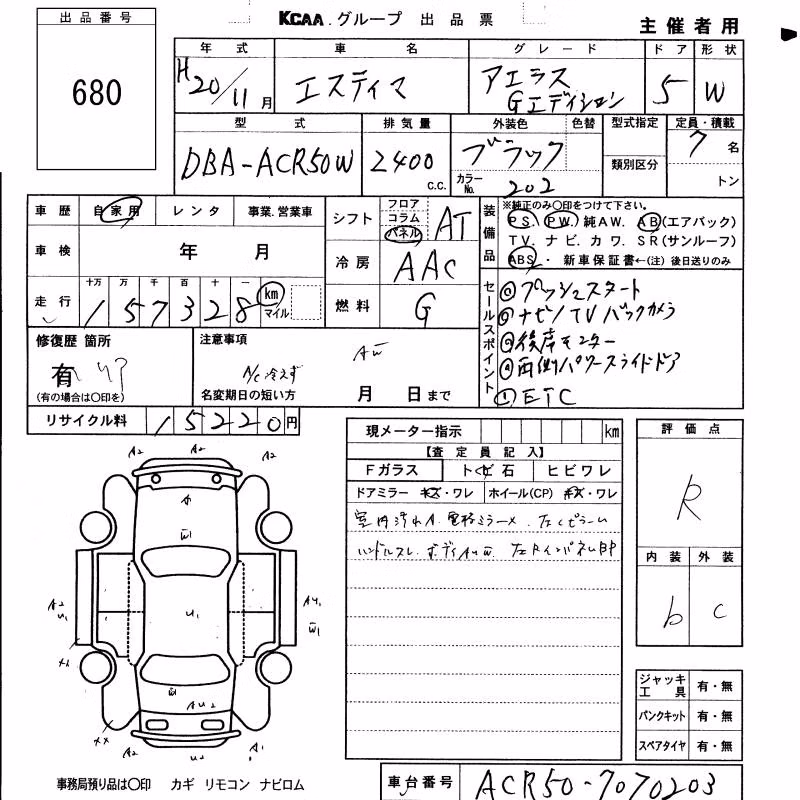 出品番号
680
KCAA.グループ 出品票
主催者用
年式 車名 グレード ドア 形状
H20/11月 エスティマ アエラス Gエディション 5 W
型式 排気量 外装色 色替 型式指定 定員・積載
DBA-ACR50W 2400 C.C. ブラック 7 名
カラーNo. 202 類別区分 トン
車歴 自家用 レンタ 事業.営業車
車検 年 月
走行 十万 万 千 百 十 一
157328 km マイル
シフト フロア コラム パネル AT
冷房 AAC
燃料 G
装備品
※純正のみ〇印をつけて下さい。
PS. PW. 純AW. AB(エアバック)
TV. ナビ. カワ. SR(サンルーフ)
ABS. 新車保証書←(注) 後日送りのみ
セールスポイント
プッシュスタート
ナビ/TV バックカメラ
後席モニター
両側パワースライドドア
ETC
修復歴 箇所
有
(有の場合は〇印を)
注意事項
AW
A/C冷えず
名変期日の短い方 月 日まで
リサイクル料 15220円
現メーター指示 km
【査定員記入】
Fガラス トビ石 ヒビワレ
ドアミラー キズ・ワレ ホイール(CP) キズ・ワレ
評価点
R
内装 外装
b C
ジャッキ工具 有・無
パンクキット 有・無
スペアタイヤ 有・無
A2 A2 A2
A
W1
A2
U1
U1
W1
XX
W
AU2
XX
A2 U2 A1
事務局預り品は〇印 カギ リモコン ナビロム
車台番号 ACR50-7070203